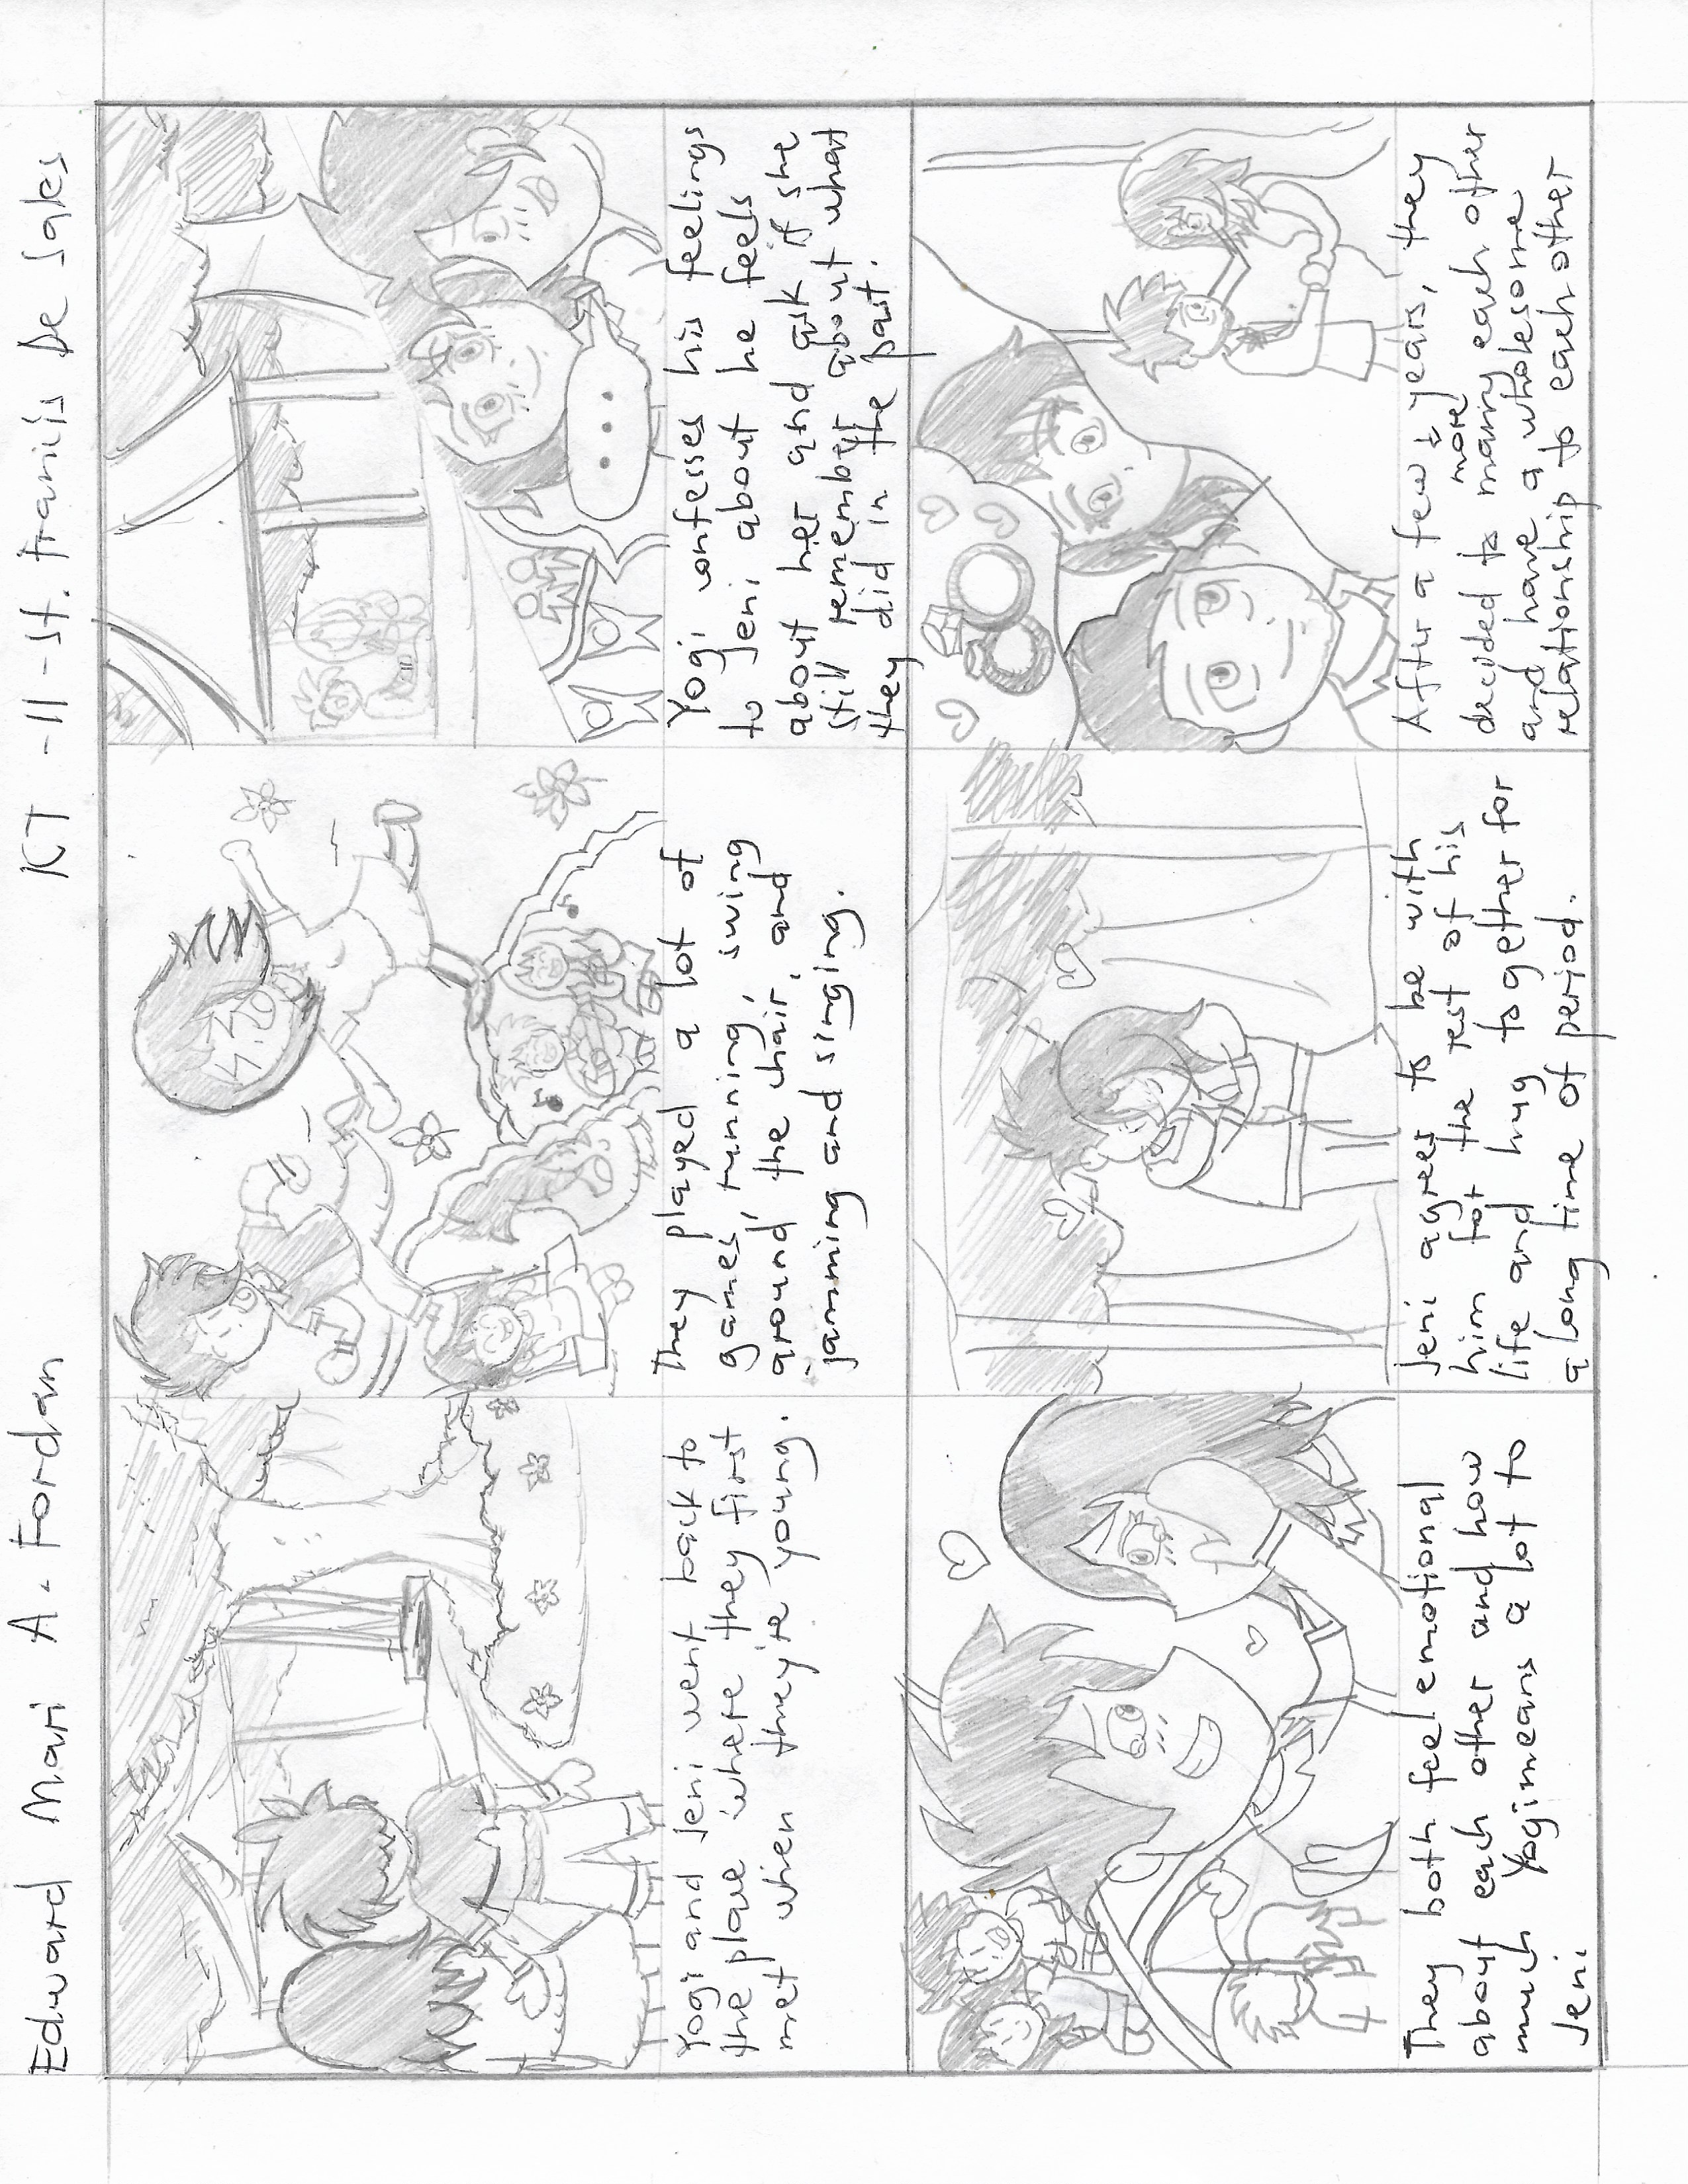 Edward Mari A. Fordan
KT -11-St. Francis De Sales
Yogi and Jeni went back to
the place where they first
met when they're young.
They played a lot of
games, running, swing
around the chair, and
jamming and singing.
Yogi confesses his feelings
to Jeni about he feels
about her and ask if she
still remember about what
they did in the past.
...
They both feel emotional
about each other and how
much Yogi means a lot to
Jeni
Jeni agrees to be with
him for the rest of his
life and hug together for
a long time of period.
After a few years, they
more
decided to marry each other
and have a wholesome
relationship to each other